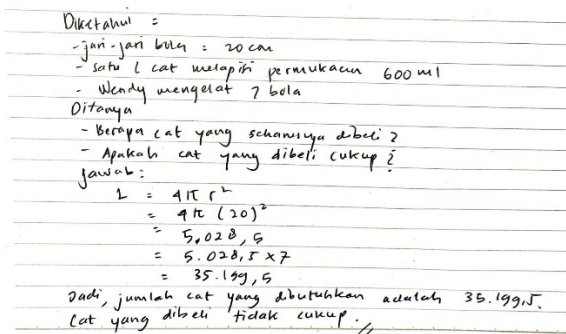 Diketahui =
- jari-jari bola = 20 cm
- satu l cat melapisi permukaan 600 ml
- Wendy mengecat 7 bola
Ditanya
- Berapa cat yang seharusnya dibeli ?
- Apakah cat yang dibeli cukup ?
Jawab :
L = 4π r²
= 4π (20)²
= 5.028,5
= 5.028,5 x 7
= 35.199,5
Jadi, jumlah cat yang dibutuhkan adalah 35.199,5.
Cat yang dibeli tidak cukup. //